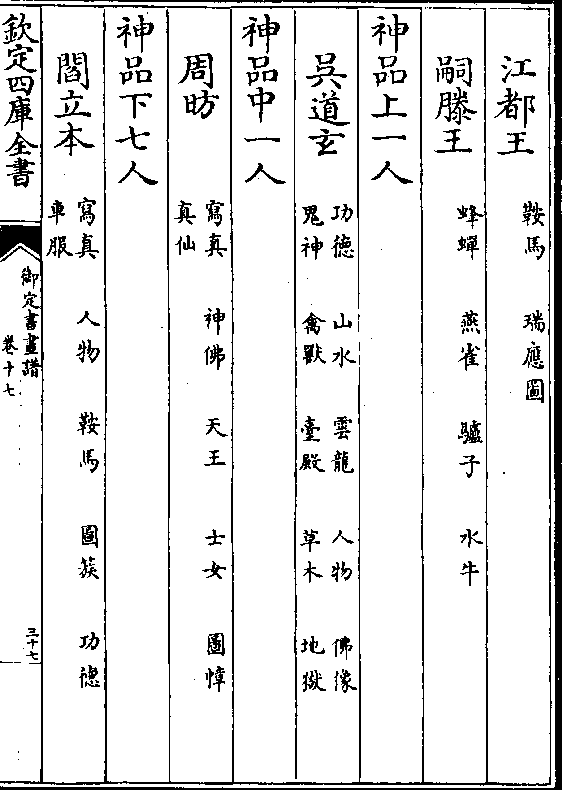 江都王 鞍馬 瑞應圖
嗣滕王 蜂蟬 燕雀 驢子 水牛
神品上一人
吳道玄 功德 山水 雲龍 人物 佛像
鬼神 禽獸 臺殿 草木 地獄
神品中一人
周昉 寫真 神佛 天王 士女 圖幛
真仙
神品下七人
閻立本 寫真 人物 鞍馬 圖簇 功德
車服
欽定四庫全書
御定書畫譜
卷十七
三十七